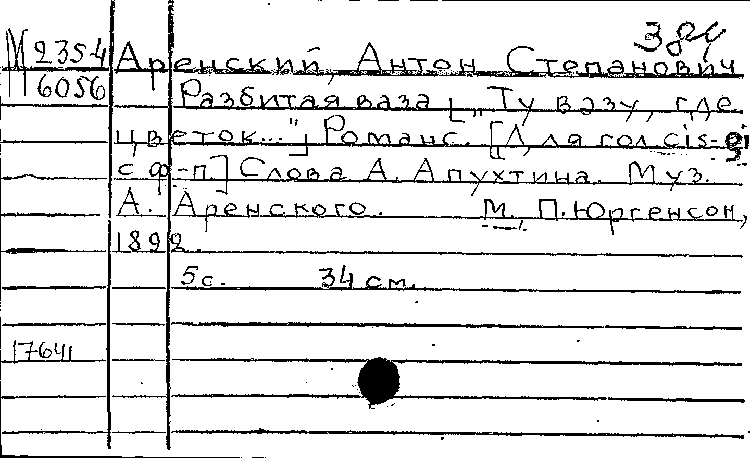 384
М 2354 Аренский, Антон Степанович
6056 Разбитая ваза [„Ту вазу, где
цветок..."] Романс. [Для гол. cis-gis
с ф-п.] Слова А. Апухтина. Муз.
А. Аренского. М., П. Юргенсон,
1892.
5 с. 34 см.
17641